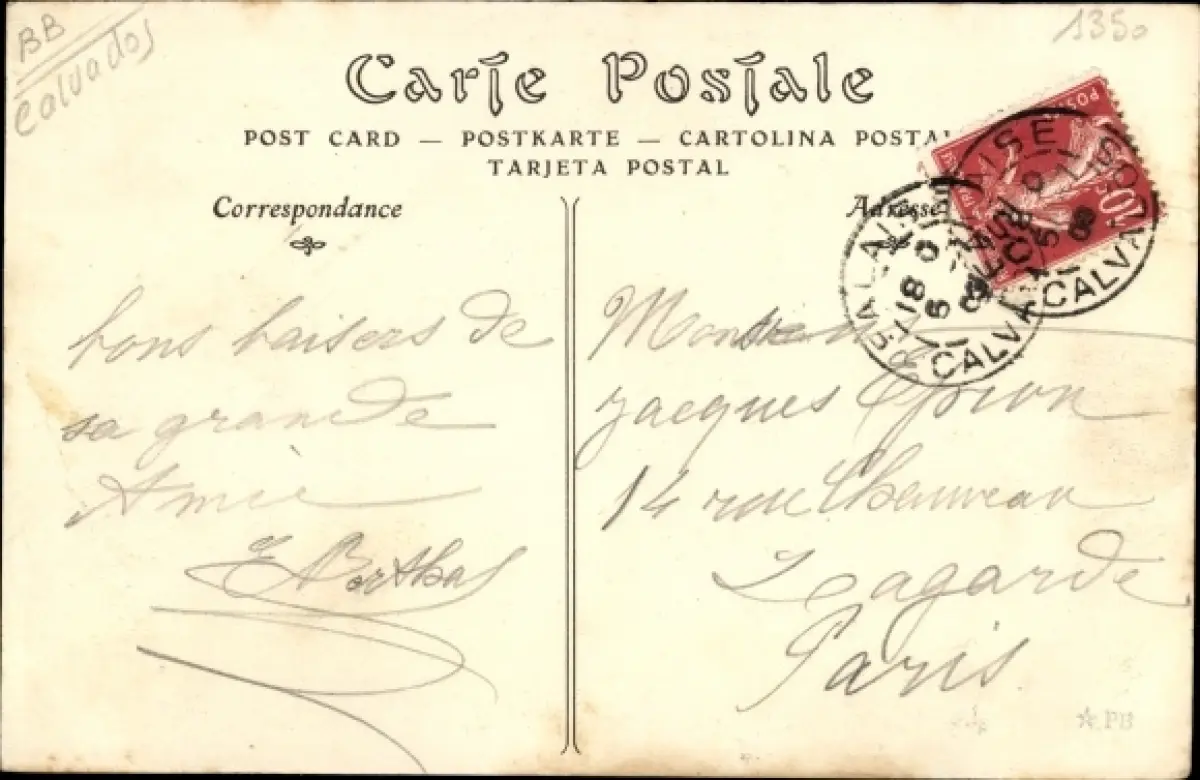 BB
Calvados
1350
Carte Postale
POST CARD — POSTKARTE — CARTOLINA POSTAL
TARJETA POSTAL
Correspondance
Adresse
POSTES
10c
FALAISE
CALVADOS
FALAISE
CALVADOS
bons baisers de
sa grande
Amie
E Berthas
Jacques
14 rue Chauveau
Lagarde
Paris
PB